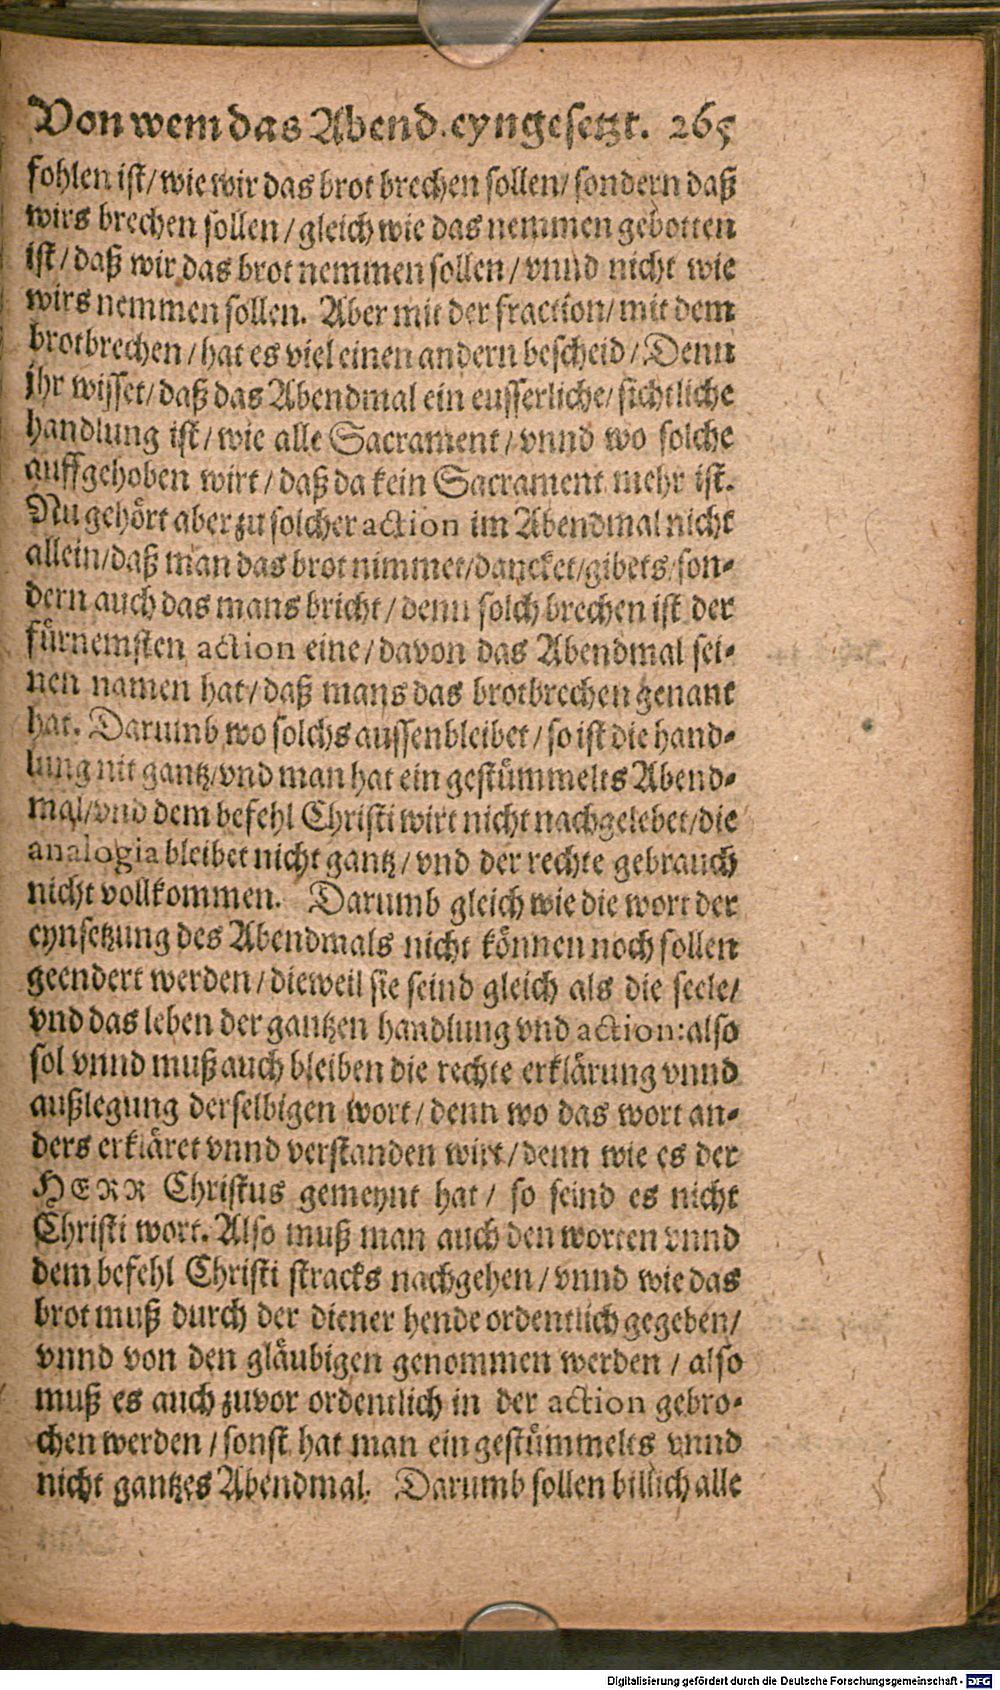 Von wem das Abend. eyngesetzt. 265
fohlen ist/ wie wir das brot brechen sollen/ sondern daß
wirs brechen sollen/ gleich wie das nemmen gebotten
ist/ daß wir das brot nemmen sollen/ vnnd nicht wie
wirs nemmen sollen. Aber mit der fraction/ mit dem
brotbrechen/ hat es viel einen andern bescheid/ Denn
jhr wisset/ daß das Abendmal ein eusserliche/ sichtliche
handlung ist/ wie alle Sacrament/ vnnd wo solche
auffgehoben wirt/ daß da kein Sacrament mehr ist.
Nu gehört aber zu solcher action im Abendmal nicht
allein/ daß man das brot nimmet/ dancket/ gibets/ son-
dern auch das mans bricht/ denn solch brechen ist der
fürnemsten action eine/ davon das Abendmal sei-
nen namen hat/ daß mans das brotbrechen genant
hat. Darumb wo solchs aussenbleibet/ so ist die hand-
lung nit gantz/ vnd man hat ein gestümmelts Abend-
mal/ vnd dem befehl Christi wirt nicht nachgelebet/ die
analogia bleibet nicht gantz/ vnd der rechte gebrauch
nicht vollkommen. Darumb gleich wie die wort der
eynsetzung des Abendmals nicht können noch sollen
geendert werden/ dieweil sie seind gleich als die seele/
vnd das leben der gantzen handlung vnd action: also
sol vnnd muß auch bleiben die rechte erklärung vnnd
außlegung derselbigen wort/ denn wo das wort an-
ders erkläret vnnd verstanden wirt/ denn wie es der
HERR Christus gemeynt hat/ so seind es nicht
Christi wort. Also muß man auch den worten vnnd
dem befehl Christi stracks nachgehen/ vnnd wie das
brot muß durch der diener hende ordentlich gegeben/
vnnd von den gläubigen genommen werden/ also
muß es auch zuvor ordentlich in der action gebro-
chen werden/ sonst hat man ein gestümmelts vnnd
nicht gantzes Abendmal. Darumb sollen billich alle
Digitalisierung gefördert durch die Deutsche Forschungsgemeinschaft - DFG